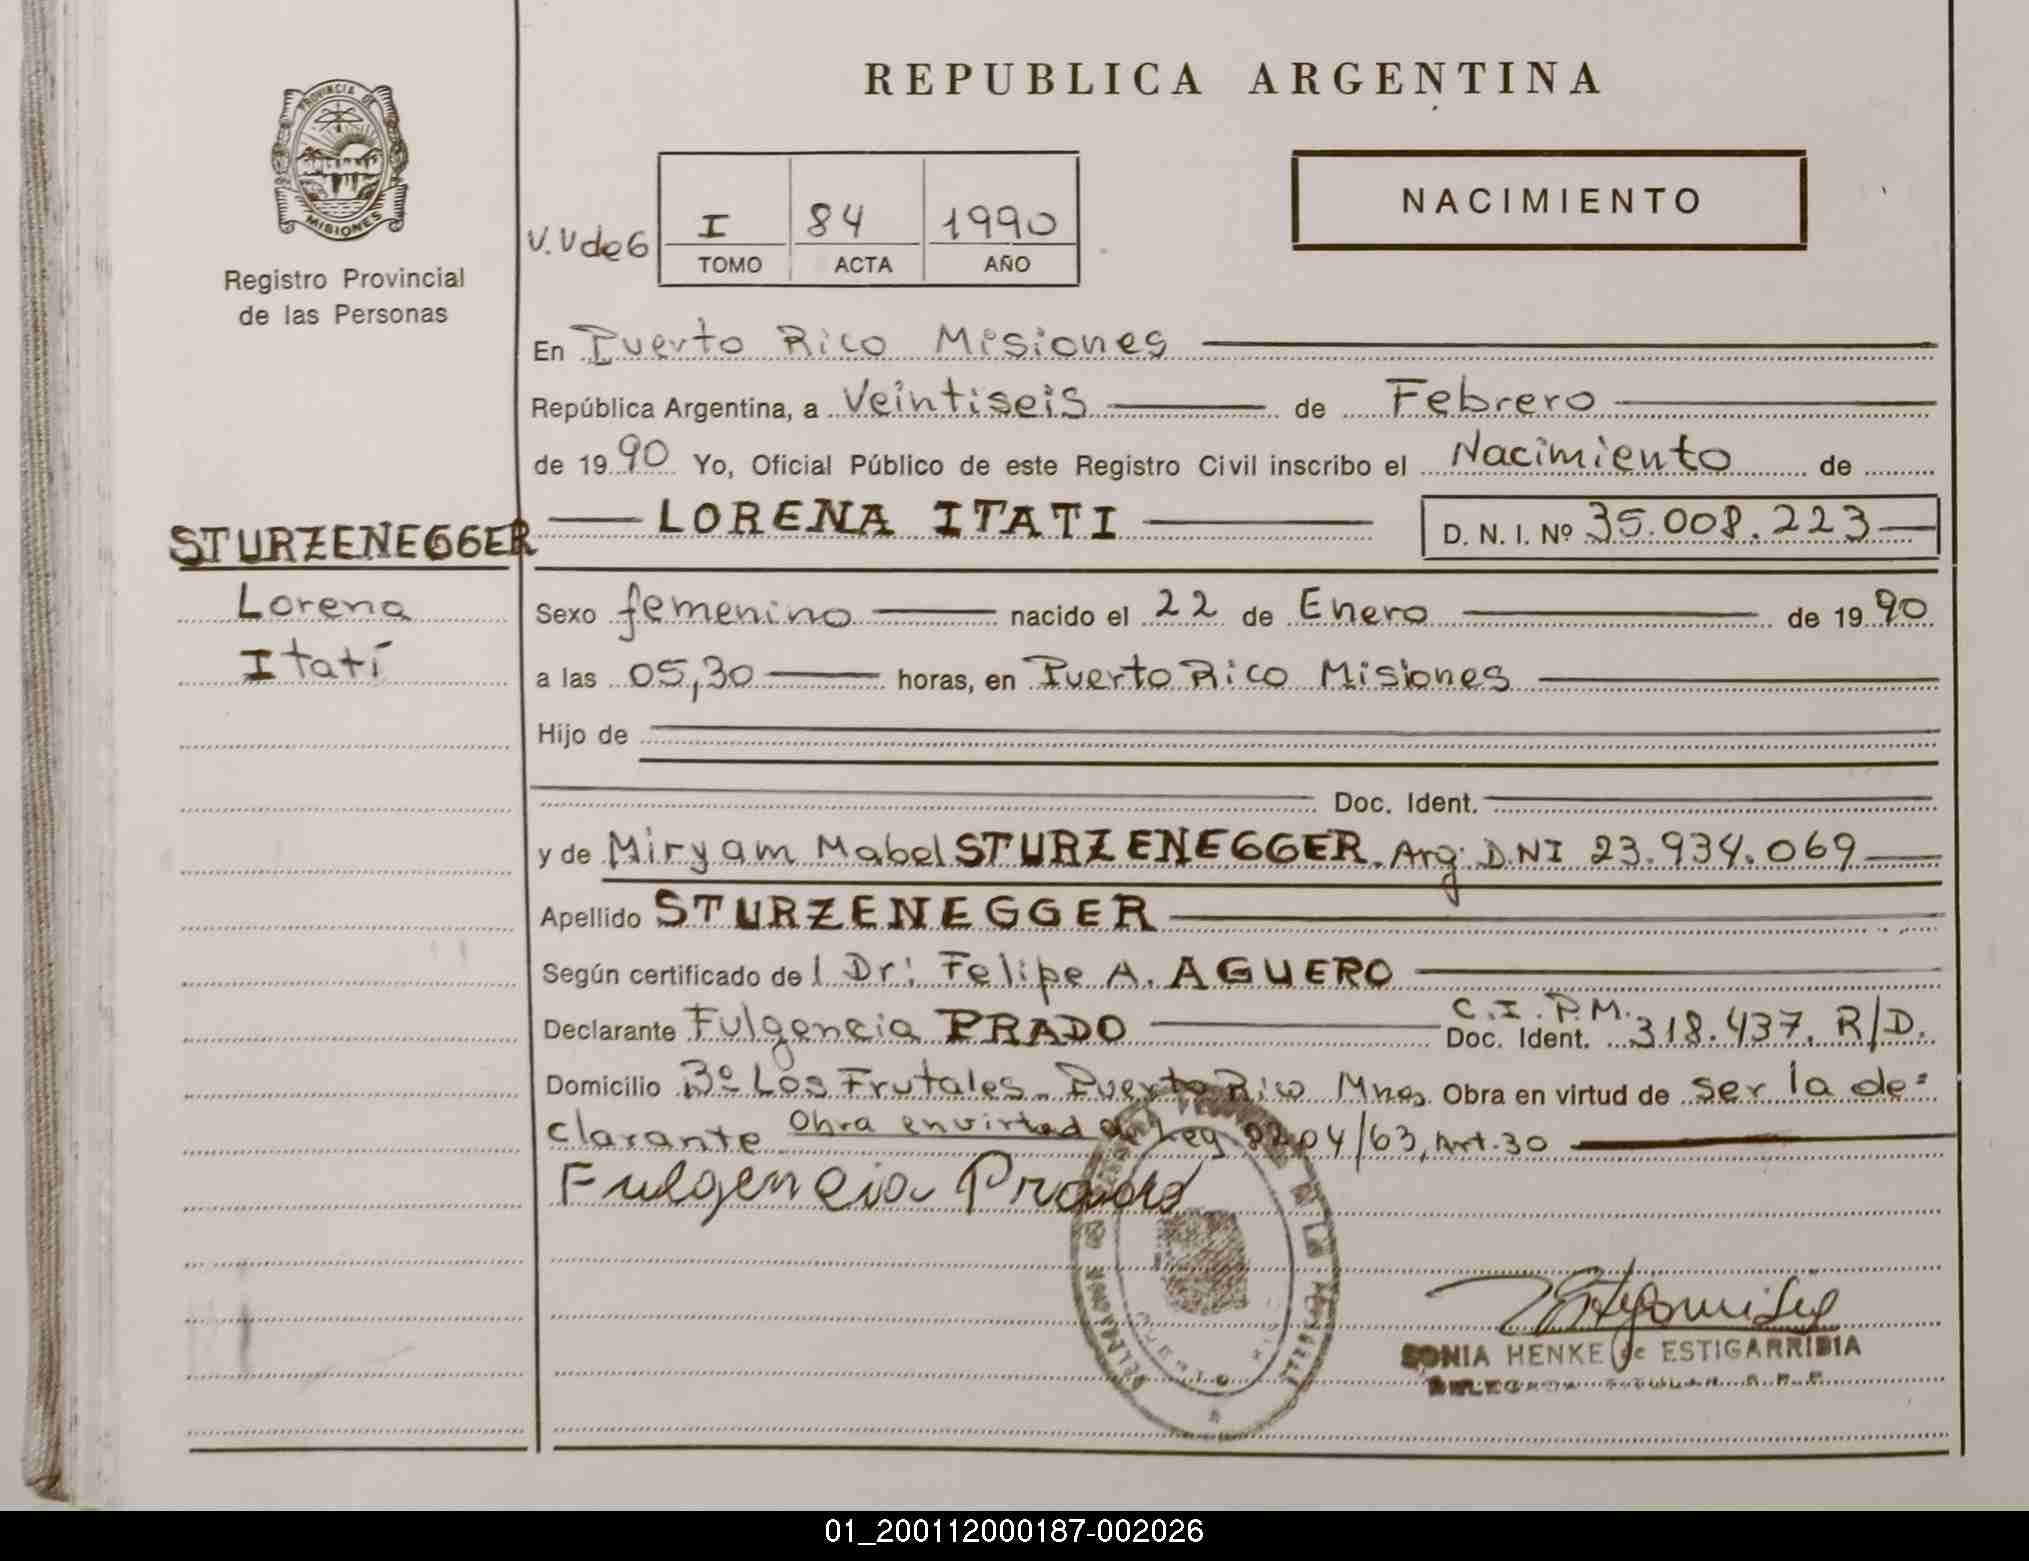 REPUBLICA ARGENTINA
PROVINCIA DE
MISIONES
Registro Provincial
de las Personas
NACIMIENTO
V.V de 6
I 84 1990
TOMO ACTA AÑO
En Puerto Rico Misiones
República Argentina, a Veintiseis de Febrero
de 1990 Yo, Oficial Público de este Registro Civil inscribo el Nacimiento de
LORENA ITATI D. N. I. Nº 35.008.223
STURZENEGGER
Lorena
Itatí
Sexo femenino nacido el 22 de Enero de 1990
a las 05,30 horas, en Puerto Rico Misiones
Hijo de
Doc. Ident.
y de Miryam Mabel STURZENEGGER. Arg. D.N.I 23.934.069
Apellido STURZENEGGER
Según certificado del Dr: Felipe A. AGUERO
Declarante Fulgencia PRADO C.I.P.M. Doc. Ident. 318.437. R/D.
Domicilio Bº Los Frutales. Puerto Rico Mnes. Obra en virtud de ser la de=
clarante Obra en virtud de Ley /63, Art. 30
Fulgencia Prado
SONIA HENKE de ESTIGARRIBIA
01_200112000187-002026